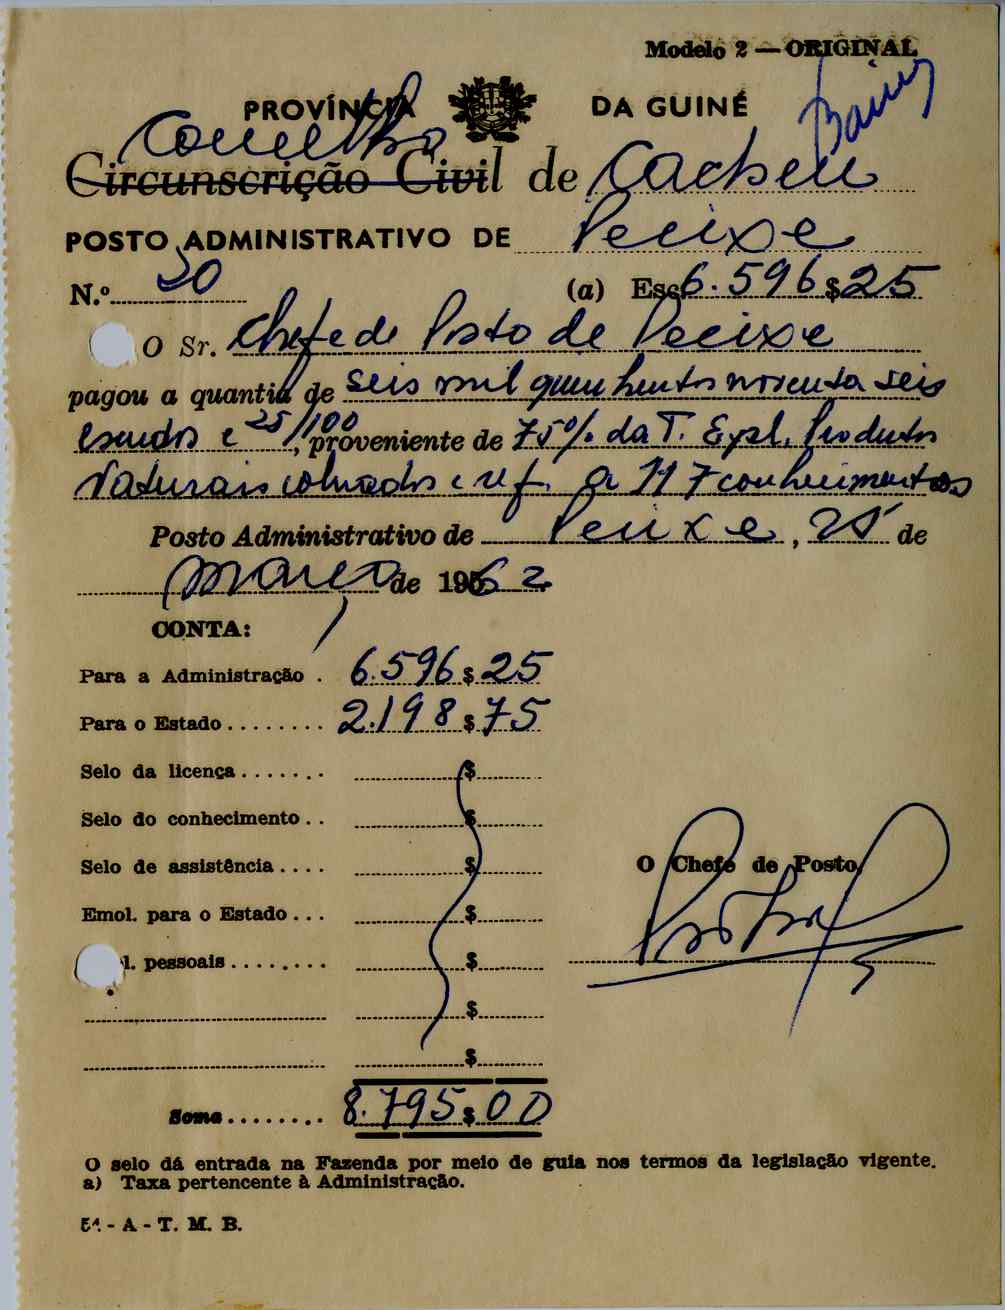 Modelo 2 — ORIGINAL
PROVÍNCIA DA GUINÉ
Concelho
Circunscrição Civil de Cacheu
POSTO ADMINISTRATIVO DE Pecixe
N.º 20 (a) Esc. 6.596$25
O Sr. Chefe de Posto de Pecixe
pagou a quantia de seis mil quinhentos noventa seis
escudos e 25/100, proveniente de 75% da T. Expl. Produtos
Naturais cobrados e ref. a 117 conhecimentos
Posto Administrativo de Pecixe, 25 de
março de 1962
CONTA:
Para a Administração . 6.596$25
Para o Estado ........ 2.198$75
Selo da licença ....... $
Selo do conhecimento .. $
Selo de assistência .... $
O Chefe de Posto,
Emol. para o Estado ... $
l. pessoais ........ $
$
$
Soma ........ 8.795$00
O selo dá entrada na Fazenda por meio de guia nos termos da legislação vigente.
a) Taxa pertencente à Administração.
- A - T. M. B.